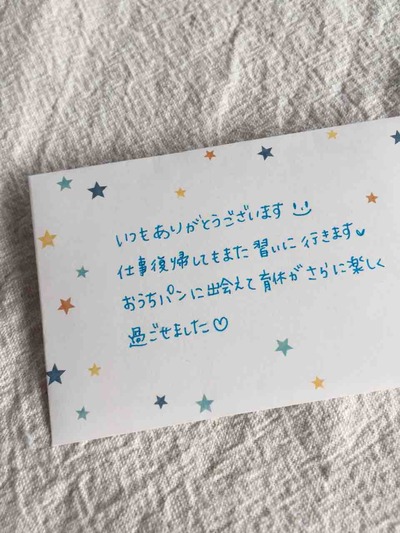 いつもありがとうございます
仕事復帰してもまた習いに行きます♥
おうちパンに出会えて育休がさらに楽しく
過ごせました♡